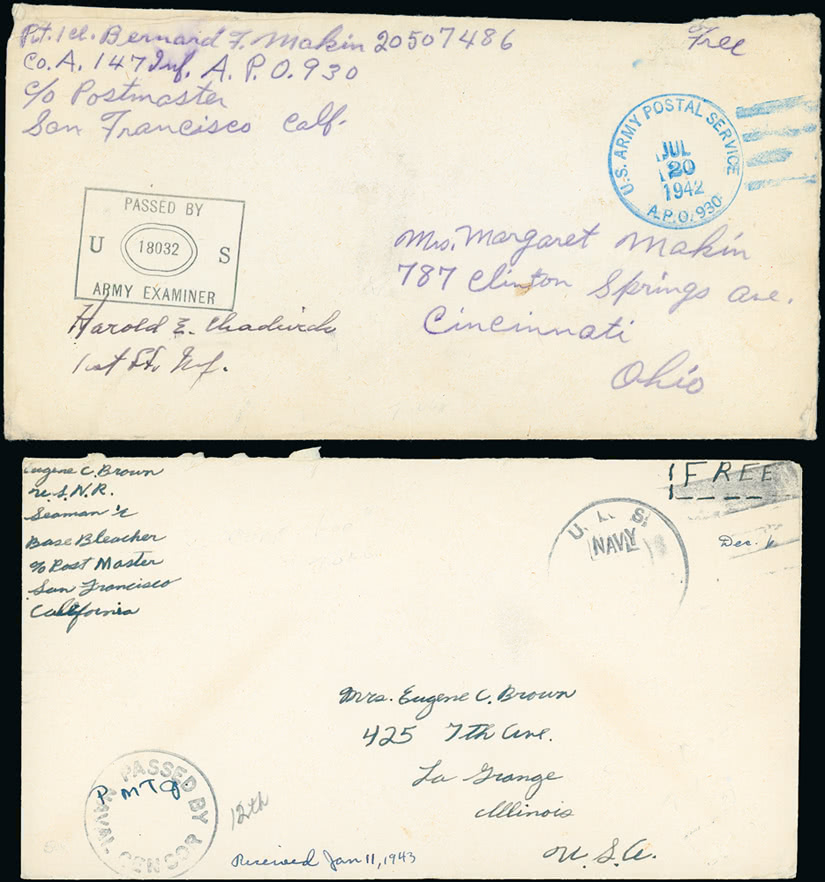 Pvt. 1cl. Bernard F. Makin 20507486
Co. A. 147 Inf. A. P. O. 930
c/o Postmaster
San Francisco Calf.
Free
U.S. ARMY POSTAL SERVICE
JUL
20
1942
A.P.O. 930
PASSED BY
U 18032 S
ARMY EXAMINER
Harold E. Chadwick
1st Lt. Inf.
Mrs. Margaret Makin
787 Clinton Springs Ave.
Cincinnati
Ohio
Eugene C. Brown
U.S.N.R.
Seaman
Base Bleacher
c/o Post Master
San Francisco
California
FREE
U. S.
NAVY
Dec.
Mrs. Eugene C. Brown
425 7th Ave.
La Grange
Illinois
U. S. A.
PASSED BY
NAVAL CENSOR
12th
Received Jan 11, 1943